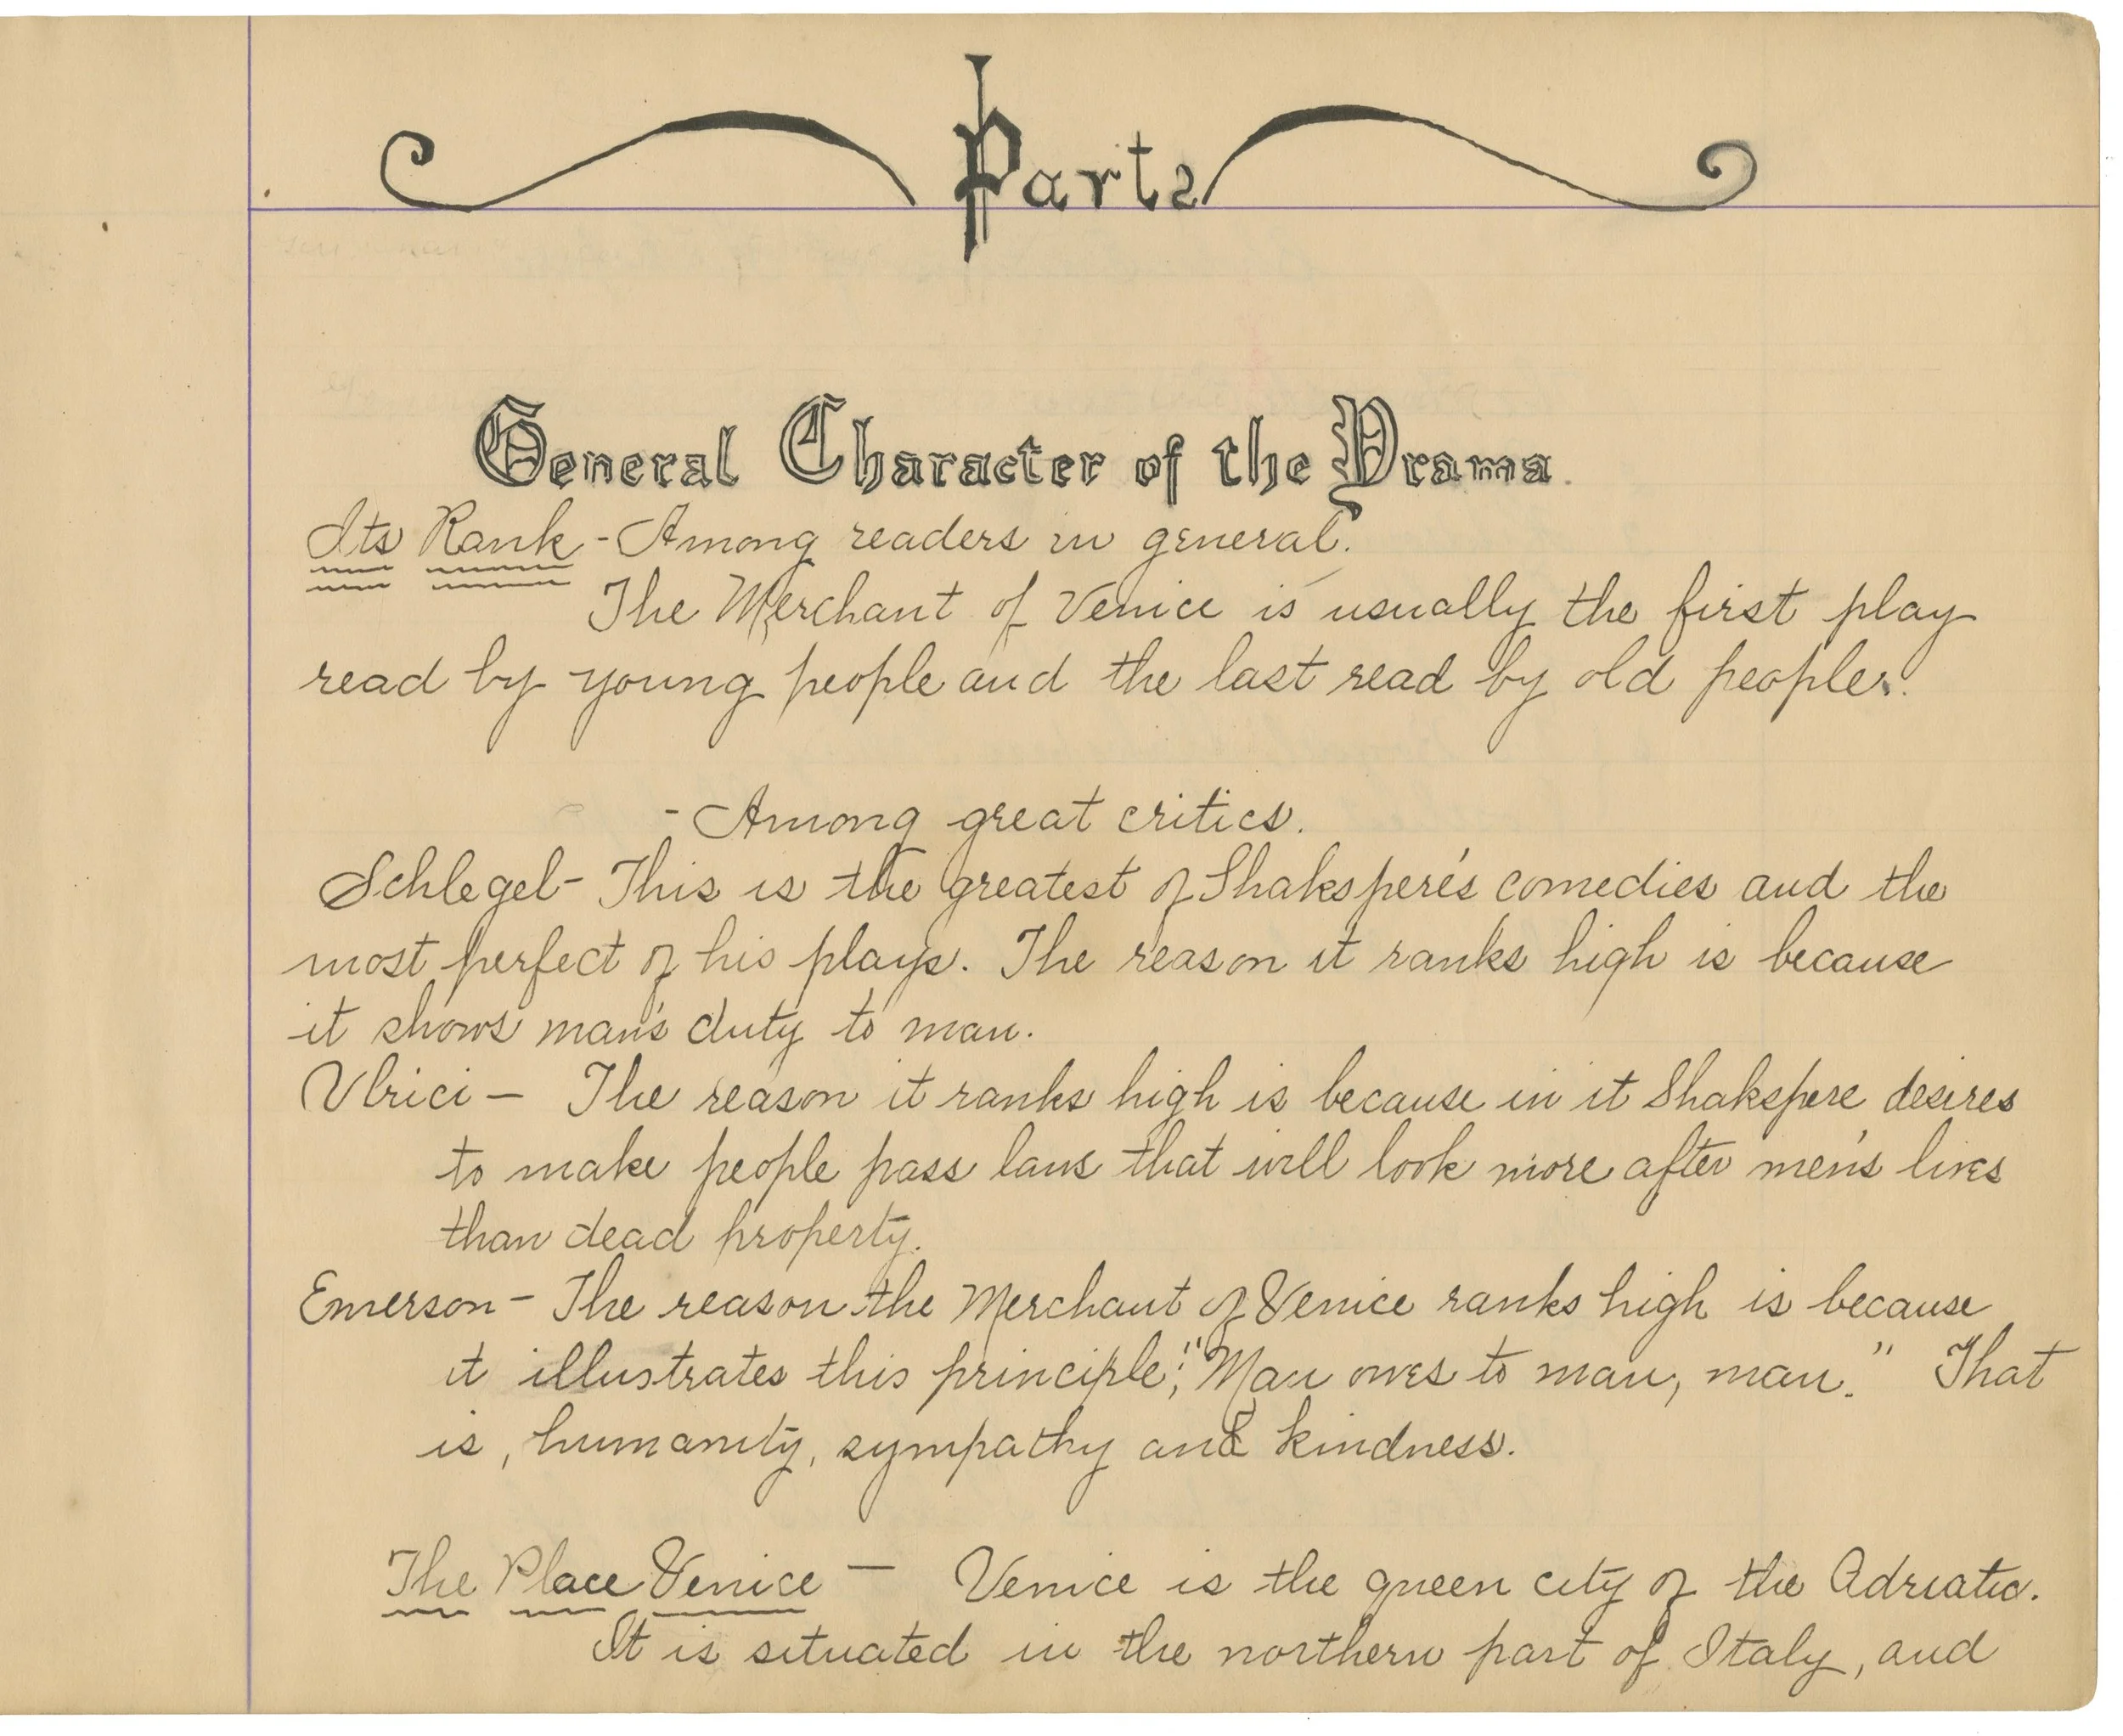 Parts
General Character of the Drama.
Its Rank - Among readers in general.
The Merchant of Venice is usually the first play
read by young people and the last read by old people.
- Among great critics.
Schlegel - This is the greatest of Shakspere's comedies and the
most perfect of his plays. The reason it ranks high is because
it shows man's duty to man.
Ulrici - The reason it ranks high is because in it Shakspere desires
to make people pass laws that will look more after men's lives
than dead property.
Emerson - The reason the Merchant of Venice ranks high is because
it illustrates this principle; "Man owes to man, man." That
is, humanity, sympathy and kindness.
The Place Venice - Venice is the queen city of the Adriatic.
It is situated in the northern part of Italy, and